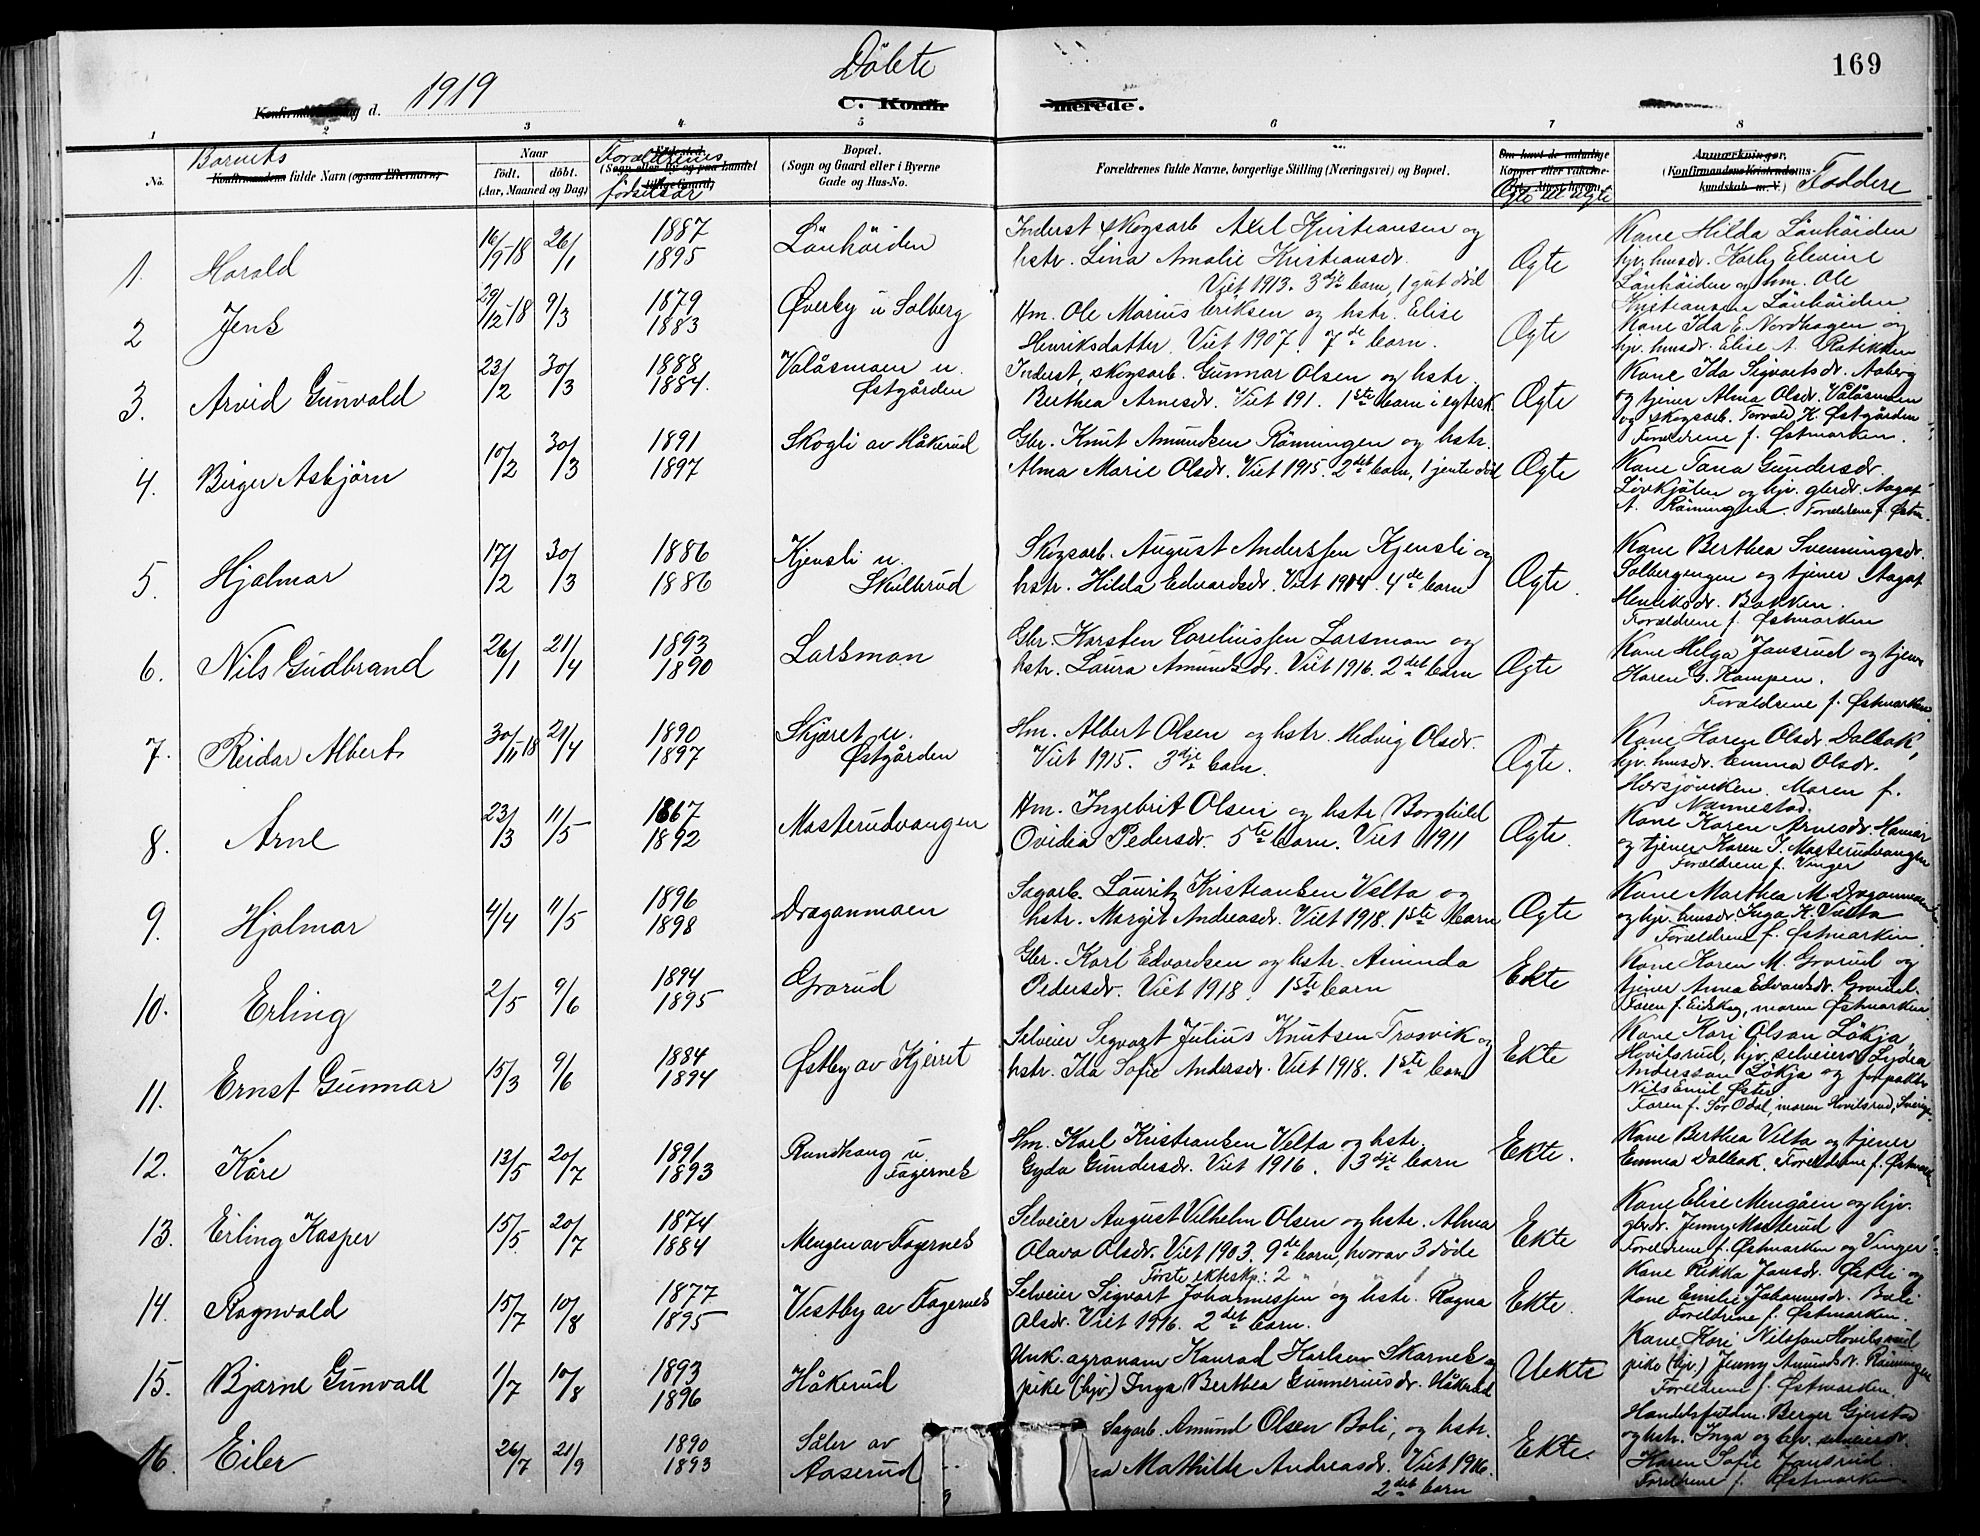 169
Döbte
1919
Konfirmationsdag d.
C. Konfirmerede.
1 2 3 4 5 6 7 8
No.
Barnets
Konfirmandens fulde Navn (ogsaa Efternavn)
Naar
født. døbt.
(Aar, Maaned og Dag)
Forældrenes
fødselsår
Fødested.
(Sogn eller By og paa Landet tillige Gaard)
Bopæl.
(Sogn og Gaard eller i Byerne
Gade og Hus-No.
Forældrenes fulde Navne, borgerlige Stilling (Næringsvei) og Bopæl.
Om havt de naturlige
Ægte ell. uægte
Anmærkninger.
(Konfirmandens Kristendoms-
kundskab m. V.) Faddere
1. Harald 16/9-18 26/1 1887 1895 Lönhöiden
Inderst skogsarb. Axel Kristiansen og
hstr. Lina Amalie Kristiansdr.
Viet 1913. 3dje barn, 1 gut död
Ægte
Kone Hilda Lönhöiden
hjv. husdr. Karly Elevine
Lönhöiden og hm. Ole
Kristiansen Lönhöiden
2 Jens 29/12-18 9/3 1879 1883 Øverby u Solberg
Hm. Ole Marius Eriksen og hstr. Elise
Henriksdatter. Viet 1907. 7de barn.
Ægte
Kone Ida E. Nordhagen og
hjv. husdr. Elise A. Ratikken
3. Arvid Gunvald 23/2 30/3 1888 1884. Valåsmoen u. Østgården
Inderst, skogsarb. Gunnar Olsen og hstr.
Berthea Arnesdr. Viet 191. 1ste barn i egtesk.
Ægte
Kone Ida Sigvartsdr. Aaberg
og tjener Alma Olsdr. Valåsmoen
og skogsarb. Torvald K. Østgården
Forældrene f. Østmarken.
4. Birger Asbjörn 10/2 30/3 1891 1897 Skogli av Håkerud
Gbr. Knut Amundsen Rönningen og hstr.
Alma Marie Olsdr. Viet 1915. 2det barn, 1 jente död
Ægte
Kone Tana Gundersdr.
Lövkjölen og hjv. gbrdr. Aagot
A. Rönningen. Forældrene f. Østm.
5. Hjalmar 17/2 30/3 1886 1886 Kjensli u. Skulbrud
Skogsarb. August Anderssen Kjensli og
hstr. Hilda Edvardsdr. Viet 1904. 4de barn
Ægte.
Kone Berthea Svenningsdr.
Solbergengen og tjener Aagot
Henriksdr. Bakken.
Forældrene f. Østmarken
6. Nils Gudbrand 26/1 21/4 1893 1890 Larsmon
Gbr. Karsten Coreliussen Larsmon og
hstr. Laura Amundsdr. Viet 1916. 2det barn
Ægte
Kone Helga Jansrud og tjener
Karen G. Kampen.
Forældrene f. Østmarken.
7. Reidar Albert 30/11-18 21/4 1890 1897 Skjæret u. Østgården
Hm. Albert Olsen og hstr. Hedvig Olsdr.
Viet 1915. 3dje barn.
Ægte.
Kone Karen Olsdr. Dalbak,
hjv. husdr. Emma Olsdr.
Hersjöviken. Moren f.
Nannestad.
8. Arne 23/3 11/5 1867 1892 Masterudvangen
Hm. Ingebrit Olsen og hstr Borghild
Ovidia Pedersdr. 5te barn. Viet 1911
Ægte.
Kone Karen Arnesdr. Hamar
og tjener Karen I. Masterudvangen
Forældrene f. Vinger
9. Hjalmar 4/4 11/5 1896 1898 Draganmoen
Sagarb. Lauritz Kristiansen Velta og
hstr. Margit Andreasdr. Viet 1918. 1ste barn
Ægte
Kone Marthea M. Draganmoen
og hjv. husdr. Inga K. Velta
Forældrene f. Østmarken.
10. Erling 2/5 9/6 1894 1895 Grorud
Gbr. Karl Edvardsen og hstr. Aminda
Pedersdr. Viet 1918. 1ste barn
Ekte
Kone Karen M. Grorud og
tjener Anna Edvardsdr. Grorud.
Faren f. Eidskog, moren Østmarken
11. Ernst Gunnar 15/3 9/6 1884 1894 Østby av Kjerret
Selveier Sigvart Julius Knutsen Trosvik og
hstr. Ida Sofie Andersdr. Viet 1918. 1ste barn
Ekte
Kone Kari Olsson Lökja,
Hovilsrud, hjv. selveierdr Lydia
Andersson Lökja og forpakter
Nils Emil Øster
Faren f. Sör Odal, moren Hovilsrud, Sverige.
12. Kåre 13/5 20/7 1891 1893 Rundhaug u. Fagernes
Hm. Karl Kristiansen Velta og hstr.
Gyda Gundersdr. Viet 1916. 3dje barn
Ekte.
Kone Berthea Velta og tjener
Emma Dalbak. Foreldrene f. Østmark
13. Erling Kasper 15/5 20/7 1874 1884 Mengen av Fagernes
Selveier August Vilhelm Olsen og hstr. Alma
Olava Olsdr. Viet 1903. 9de barn, hvorav 3 døde
Ekte
Kone Elise Mengåen og hjv.
gbrdr. Jenny Masterud
Foreldrene f. Østmarken og Vinger
14. Ragnvald 15/7 10/8 1877 1895 Vestby av Fagernes
Første ekteskp: 2
Selveier Sigvart Johannessen og hstr. Ragna
Olsdr. Viet 1916. 2det barn.
Ekte.
Kone Rikka Jansdr. Østli og
Kone Emilie Johannesdr. Boli
Foreldrene f. Østmarken.
15. Bjarne Gunvall 1/7 10/8 1893 1896 Håkerud
Unk. agronom Konrad Karlsen Skarnes og
pike (hjv) Inga Berthea Gunneriusdr. Håkerud
Uekte
Kone Kari Nilsson Hovilsrud
pike (hjv) Jenny Amundsdr. Rönningen
Foreldrene f. Østmarken.
16. Eiler 26/7 21/9 1890 1893 Såler av Aaserud
Sagarb. Amund Olsen Boli, og hstr.
Mathilde Andreasdr. Viet 1916.
2det barn
Ekte.
Handelsfuldm. Berger Gjerstad
og hstr. Inga og hjv. selveierdr.
Karen Sofie Jansrud.
Foreldrene f. Østmarken